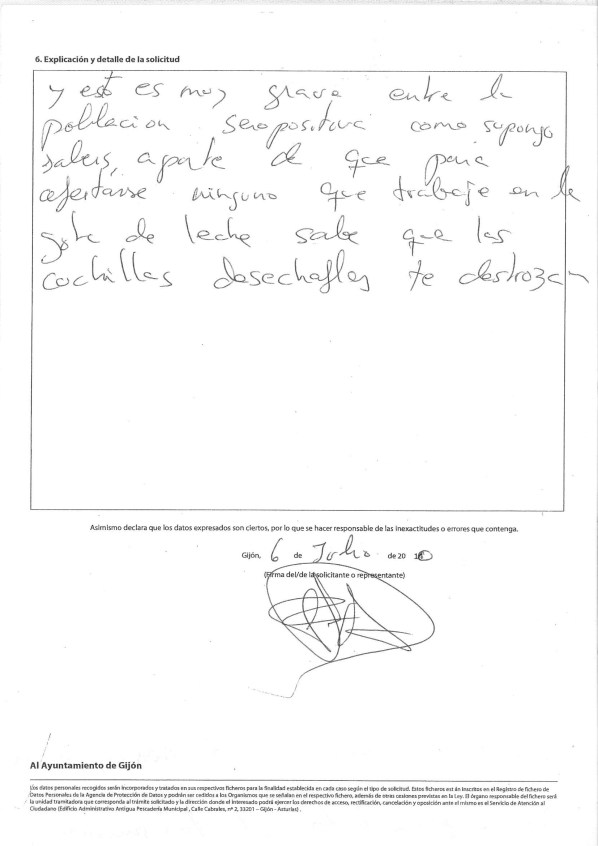 6. Explicación y detalle de la solicitud
y esto es muy grave entre la
poblacion seropositiva como supongo
sabeis, aparte de que para
afeitarse ninguno que trabaje en la
gota de leche sabe que las
cochillas desechables te destrozan
Asimismo declara que los datos expresados son ciertos, por lo que se hacer responsable de las inexactitudes o errores que contenga.
Gijón, 6 de Julio de 20 10
(Firma del/de la solicitante o representante)
Al Ayuntamiento de Gijón
Los datos personales recogidos serán incorporados y tratados en sus respectivos ficheros para la finalidad establecida en cada caso según el tipo de solicitud. Estos ficheros están inscritos en el Registro de fichero de
Datos Personales de la Agencia de Protección de Datos y podrán ser cedidos a los Organismos que se señalan en el respectivo fichero, además de otras cesiones previstas en la Ley. El órgano responsable del fichero será
la unidad tramitadora que corresponda al trámite solicitado y la dirección donde el interesado podrá ejercer los derechos de acceso, rectificación, cancelación y oposición ante el mismo es el Servicio de Atención al
Ciudadano (Edificio Administrativo Antigua Pescadería Municipal , Calle Cabrales, nº 2, 33201 – Gijón - Asturias) .